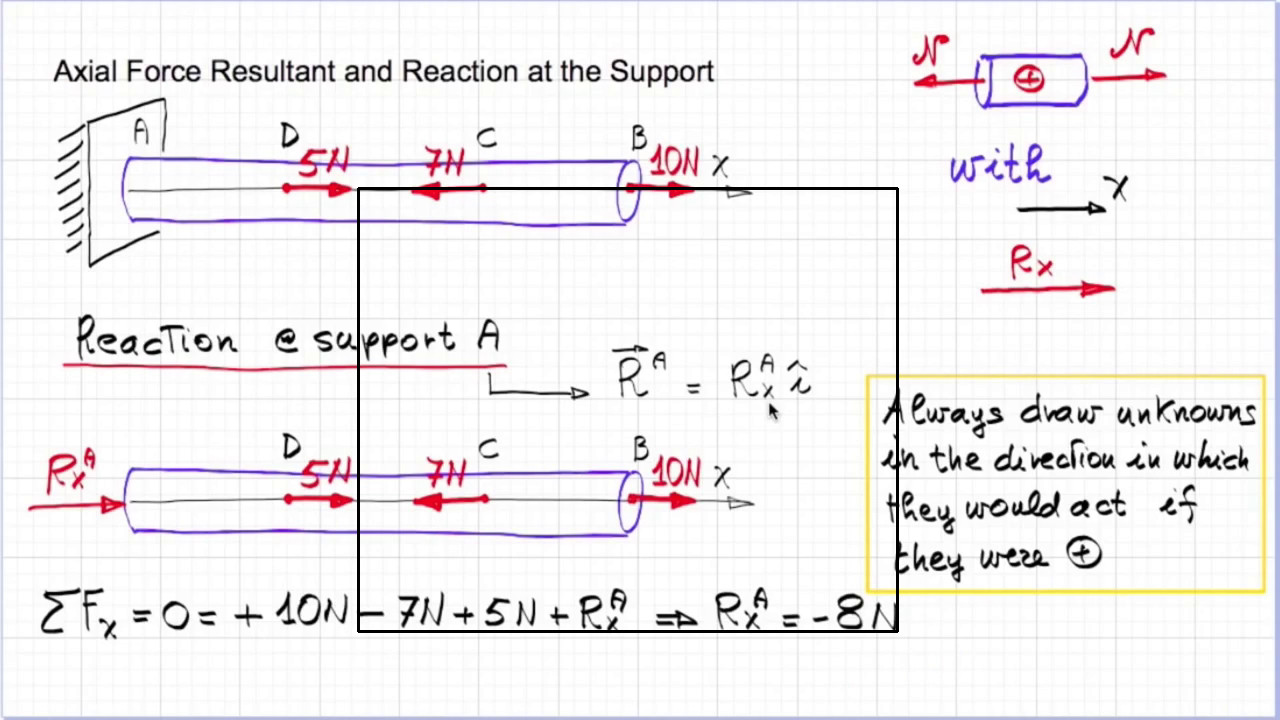 Axial Force Resultant and Reaction at the Support
N + N
A D 5N 7N C B 10N x
with x
Rx
Reaction @ support A
R^A = Rx^A î
Rx^A D 5N 7N C B 10N x
Always draw unknowns
in the direction in which
they would act if
they were ⊕
ΣFx = 0 = + 10N - 7N + 5N + Rx^A ⇒ Rx^A = - 8N